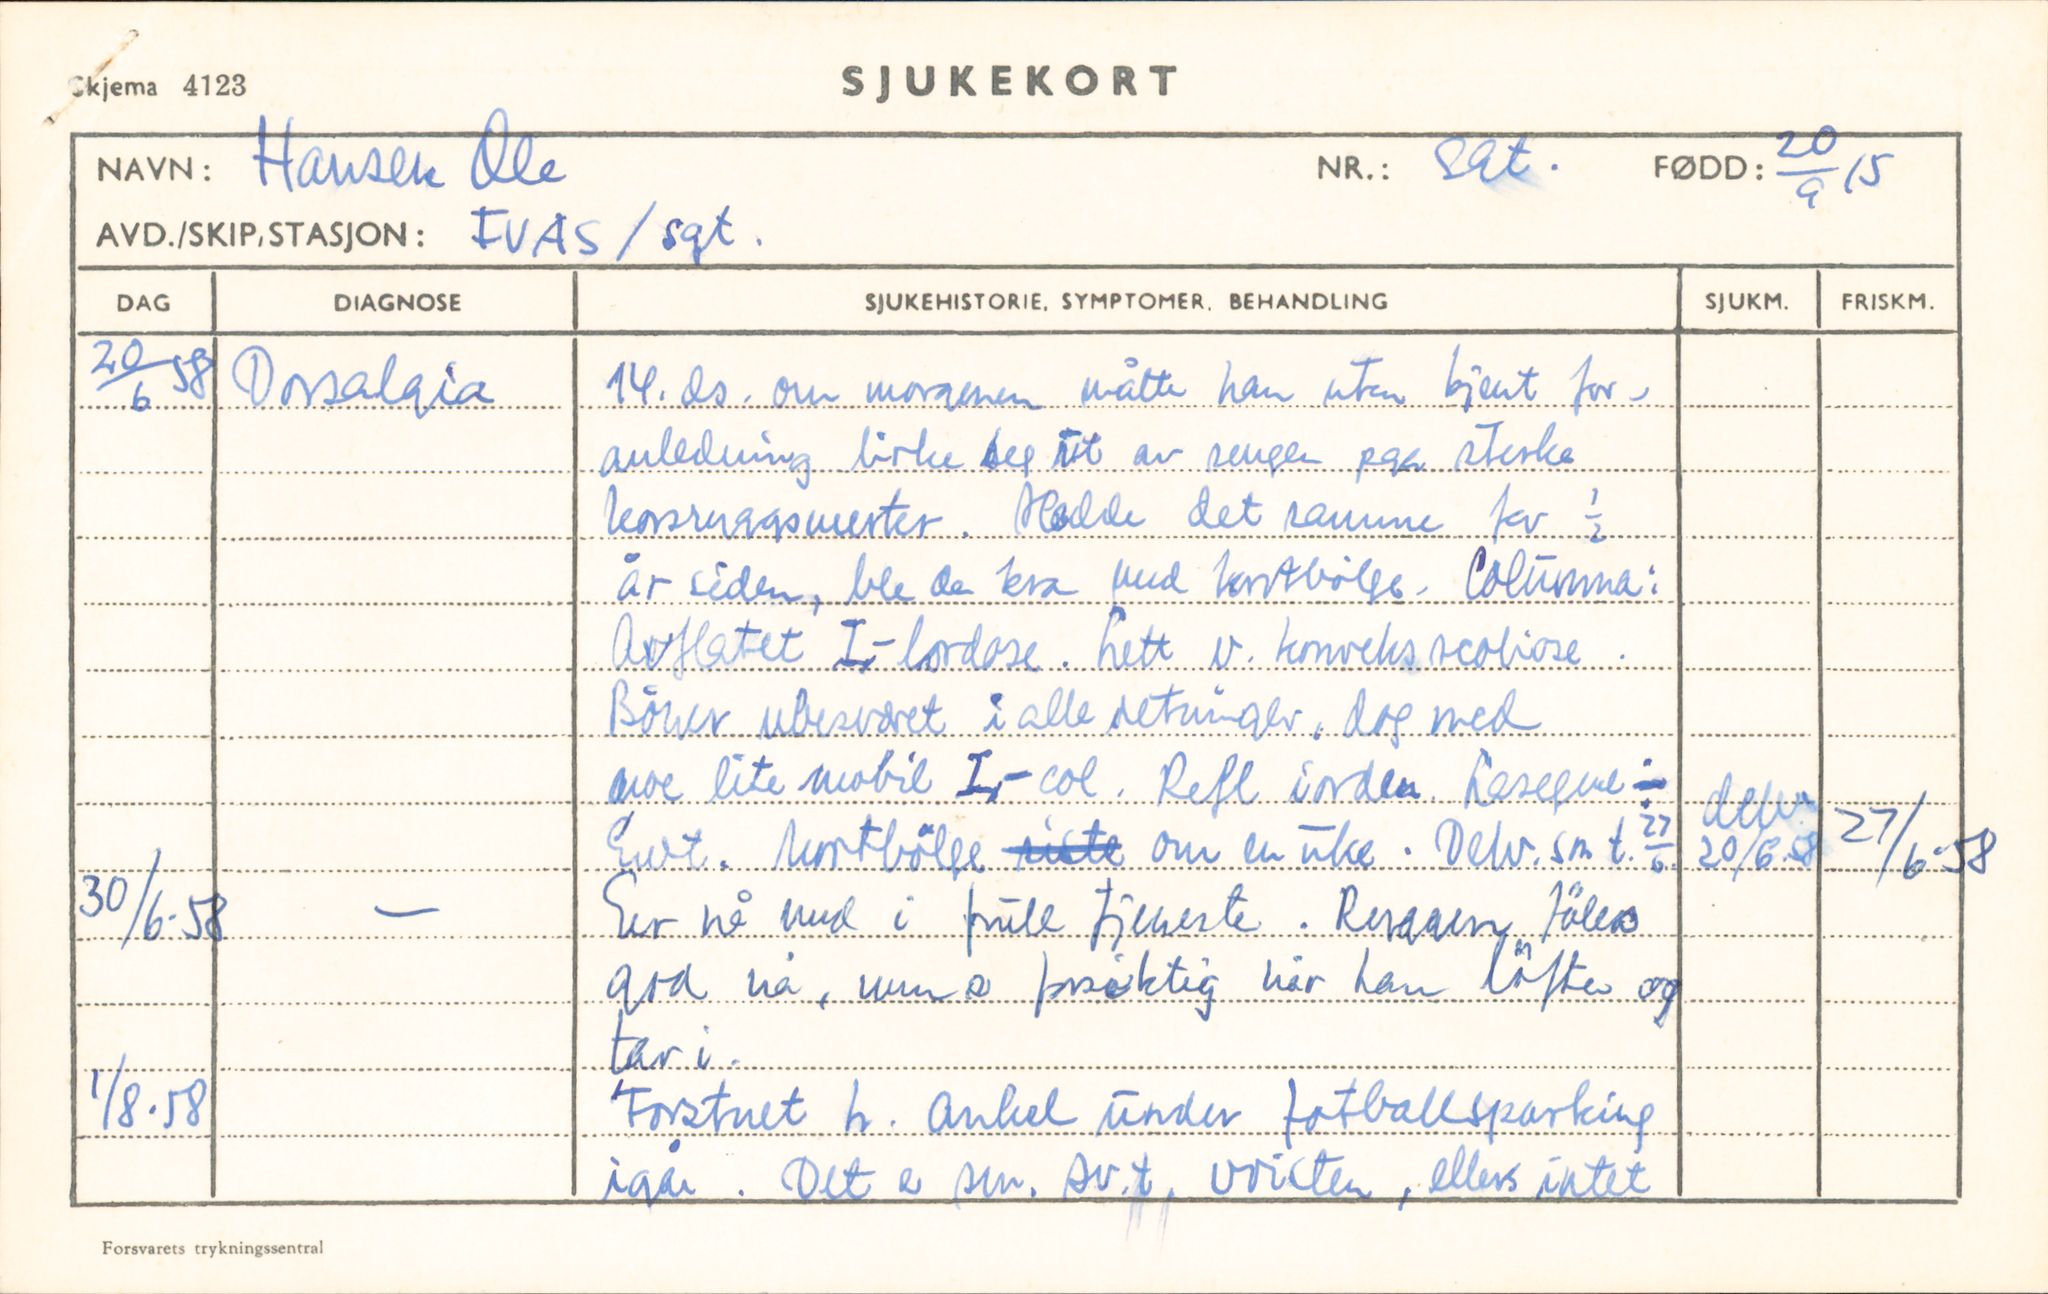 Skjema 4123
SJUKEKORT
NAVN: Hansen Ole NR.: sgt. FØDD: 20/9 15
AVD./SKIP, STASJON: IVAS / sgt.
DAG DIAGNOSE SJUKEHISTORIE, SYMPTOMER, BEHANDLING SJUKM. FRISKM.
20/6 58 Dorsalgia 14. ds. om morgenen måtte han uten kjent for-
anledning lirke seg ut av sengen pga sterke
korsryggsmerter. Hadde det samme for 1/2
år siden, ble da bra med kortbølge. Columna:
Avflatet L-lordose. Lett v. konveks scoliose.
Böyer ubesværet i alle retninger, dog med
noe lite mobil L-col. Refl i orden. Lasegue ÷
Kortbölge riste om en uke. Delv. sm t. 27/6. delv. 20/6.58 27/6-58
30/6-58 — Er nå med i full tjeneste. Ryggen föles
god nå, men e forsiktig når han löfter og
tar i.
1/8.58 Forstuet h. ankel under fotballsparking
igår. Det e sm. sv.t. vristen, ellers intet
Forsvarets trykningssentral